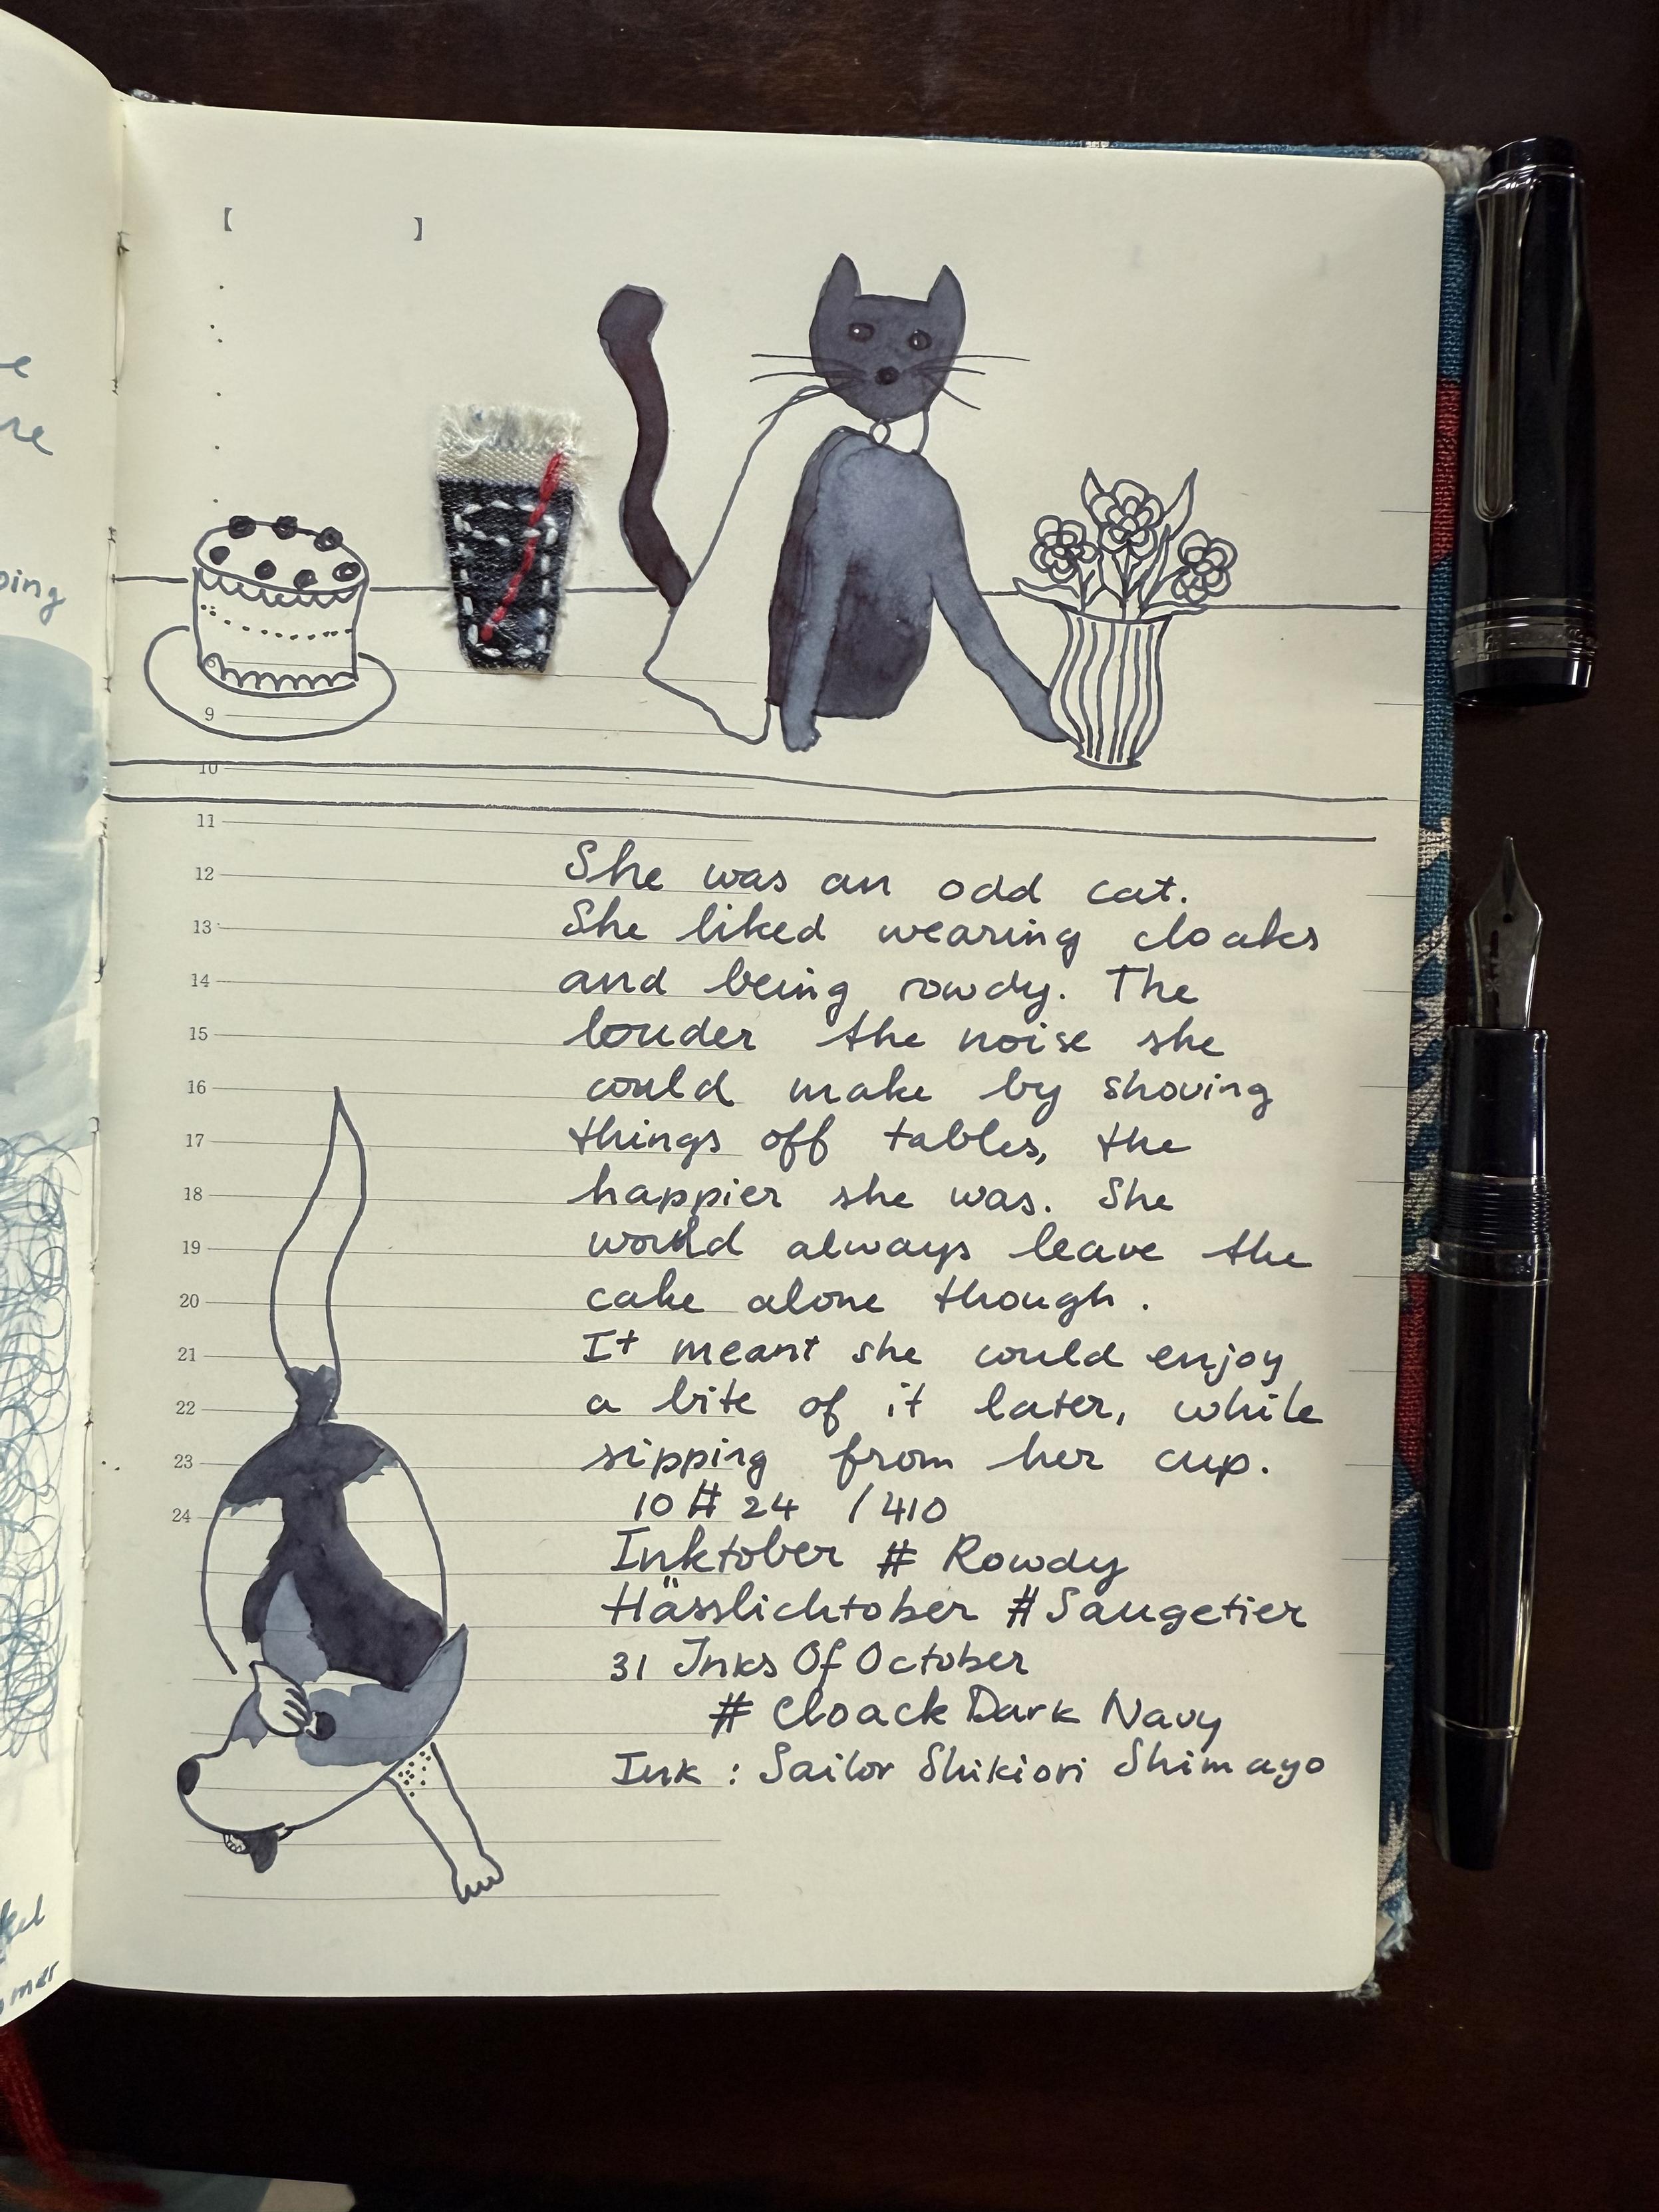 e
re
ping
【 】
9
10
11
12
13
14
15
16
17
18
19
20
21
22
23
24
She was an odd cat.
She liked wearing cloaks
and being rowdy. The
louder the noise she
could make by shoving
things off tables, the
happier she was. She
would always leave the
cake alone though.
It meant she could enjoy
a bite of it later, while
sipping from her cup.
10 # 24 /410
Inktober # Rowdy
Hässlichtober # Saugetier
31 Inks Of October
# Cloack Dark Navy
Ink : Sailor Shikiori Shimayo